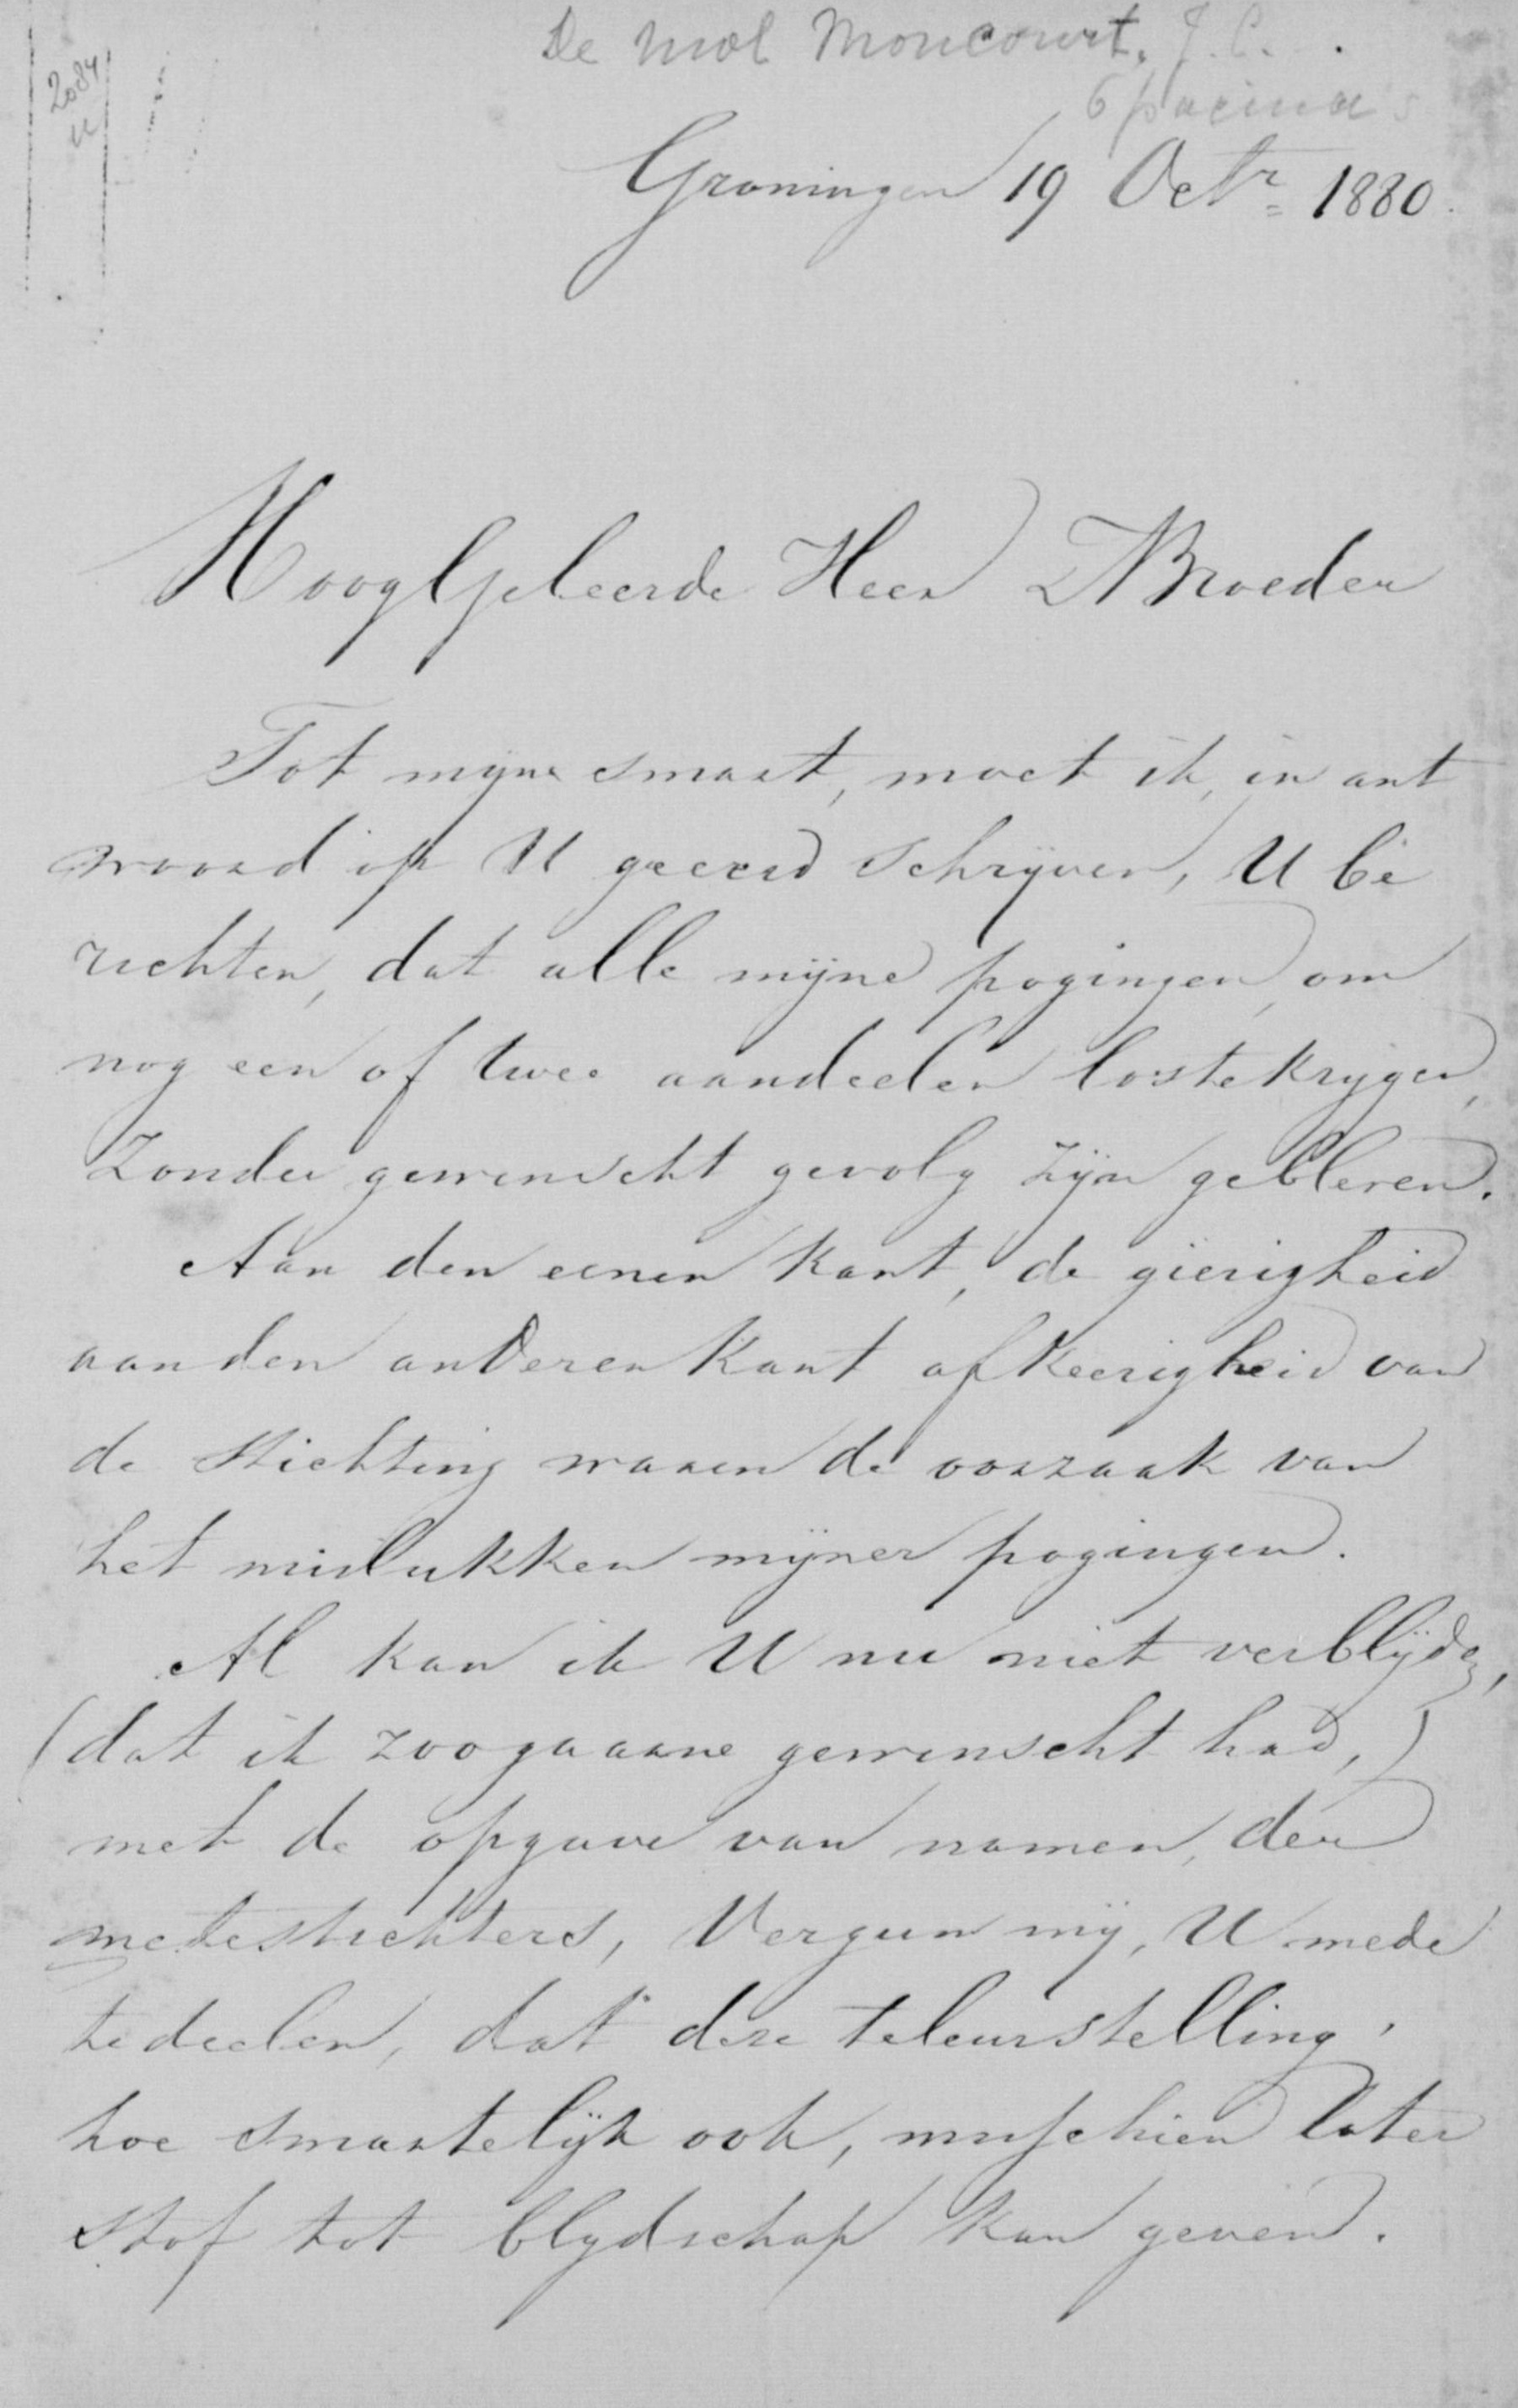 De Mol Moncourt. J. C.
6 pagina's
2084
Groningen 19 Octr 1880.
HoogGeleerde Heer & Broeder
Tot mijne smart, moet ik, in ant
woord op U geeerd schrijven, U be
richten, dat alle mijne pogingen, om
nog een of twee aandeelen lostekrygen,
zonder gewenscht gevolg zijn gebleven.
Aan den eenen kant, de gierigheid
aan den anderen kant afkeerigheid van
de stichting waren de oorzaak van
het mislukken mijner pogingen.
Al kan ik U nu niet verblijden,
(dat ik zoogaarne gewenscht had,)
met de opgave van namen, der
medestichters, Vergun mij, U mede
te deelen, dat deze teleurstelling,
hoe smartelijk ook, misschien later
stof tot blydschap kan geven.